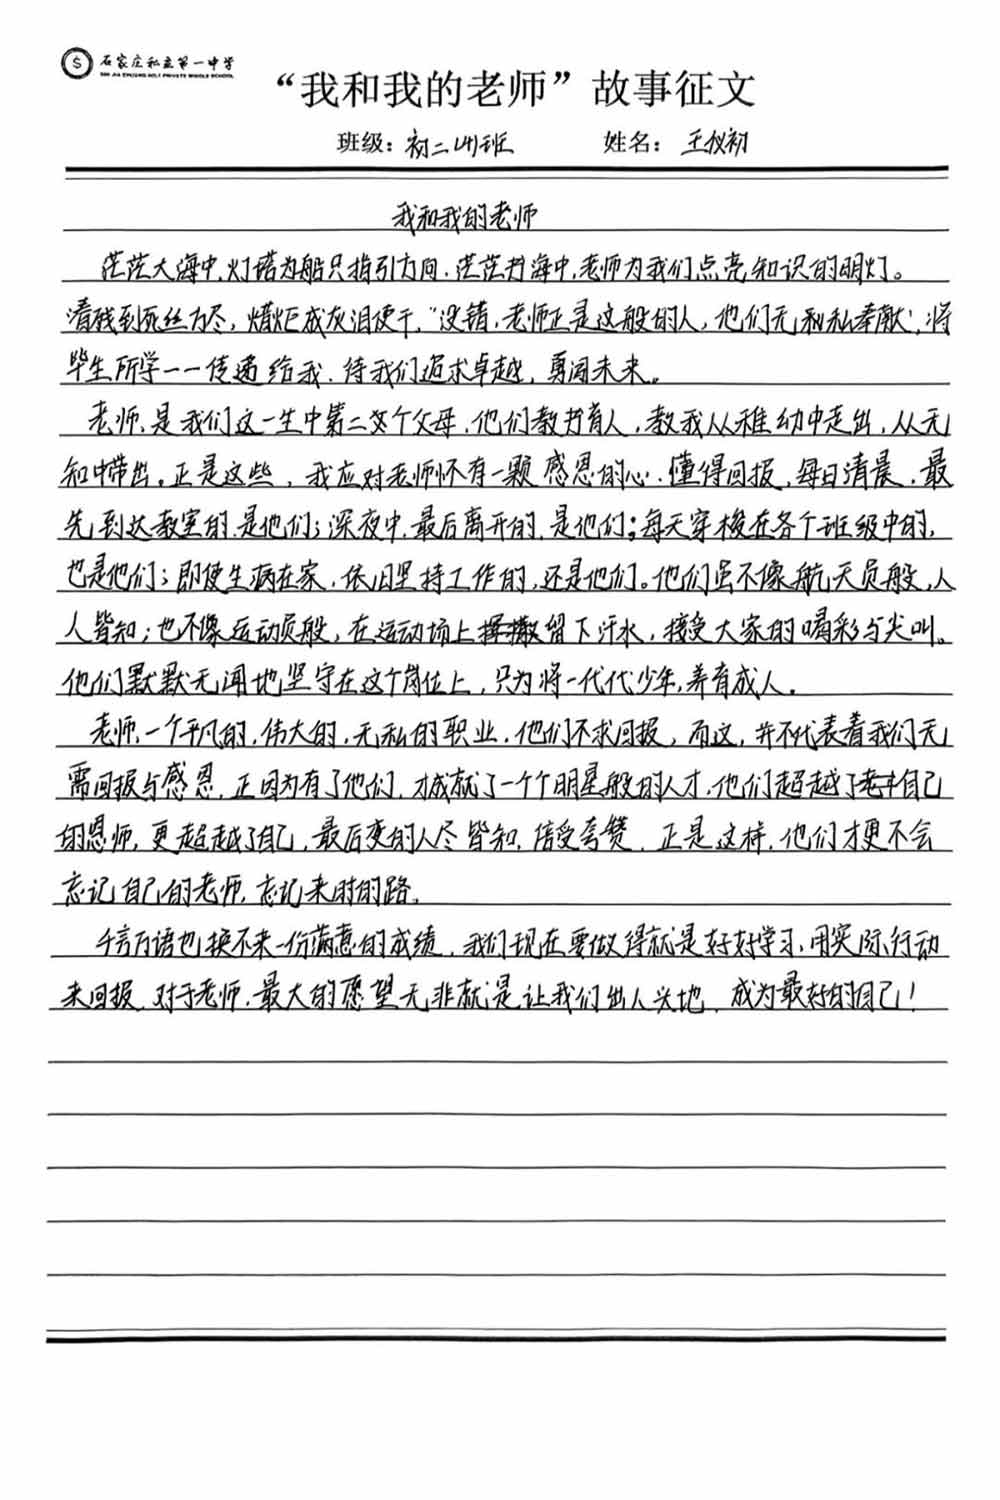 石家庄私立第一中学
SHI JIA ZHUANG NO.1 PRIVATE MIDDLE SCHOOL
“我和我的老师”故事征文
班级：初二班 姓名：王仪初
我和我的老师
茫茫大海中，灯塔为船只指引方向，茫茫书海中，老师为我们点亮知识的明灯。
春蚕到死丝方尽，蜡炬成灰泪使干，”没错，老师正是这般的人，他们无私奉献，将
毕生所学一一传递给我，待我们追求卓越，勇闯未来。
老师，是我们这一生中第二个父母，他们教书育人，教我从稚幼中走出，从无
知中带出。正是这些，我应对老师怀有一颗感恩的心，懂得回报，每日清晨，最
先到达教室的，是他们；深夜中，最后离开的，是他们；每天穿梭在各个班级中的，
也是他们；即使生病在家，依旧坚持工作的，还是他们。他们虽不像航天员般，人
人皆知；也不像运动员般，在运动场上留下汗水，接受大家的喝彩与尖叫。
他们默默无闻地坚守在这个岗位上，只为将一代代少年，养育成人。
老师，一个平凡的，伟大的，无私的职业，他们不求回报，而这，并不代表着我们无
需回报与感恩，正因为有了他们，才成就了一个个明星般的人才，他们超越了自己
的恩师，更超越了自己，最后变的人尽皆知，倍受夸赞，正是这样，他们才更不会
忘记自己的老师，忘记来时的路。
千言万语也换不来一份满意的成绩，我们现在要做得就是好好学习，用实际行动
来回报，对于老师，最大的愿望无非就是让我们出人头地，成为最好的自己！